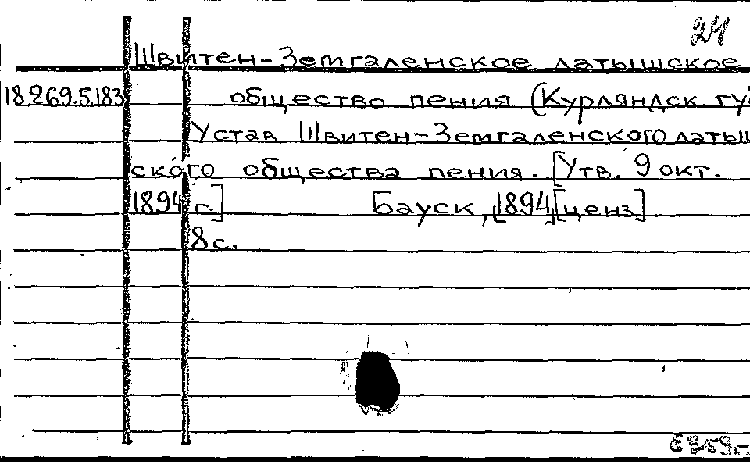 24
Швитен-Земгаленское латышское
18.269.5.183
общество пения (Курляндск. гу
Устав Швитен-Земгаленского латыш
ского общества пения. [Утв. 9 окт.
1894 г.] Бауск, [1894] [ценз]
8 с.